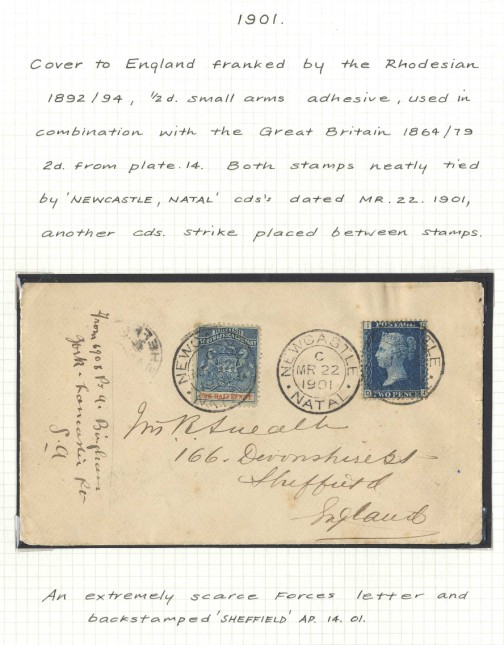 1901.
Cover to England franked by the Rhodesian
1892/94, ½d. small arms adhesive, used in
combination with the Great Britain 1864/79
2d. from plate.14. Both stamps neatly tied
by 'NEWCASTLE, NATAL' cds's dated MR. 22. 1901,
another cds. strike placed between stamps.
From 6908 Pt A. Bingham
York & Lancaster Rt
S. A
NEWCASTLE
C
MR 22
1901
NATAL
POSTAGE
TWO PENCE
ONE HALF PENNY
166. Devonshire St
Sheffield
England
An extremely scarce Forces letter and
backstamped 'SHEFFIELD' AP. 14. 01.